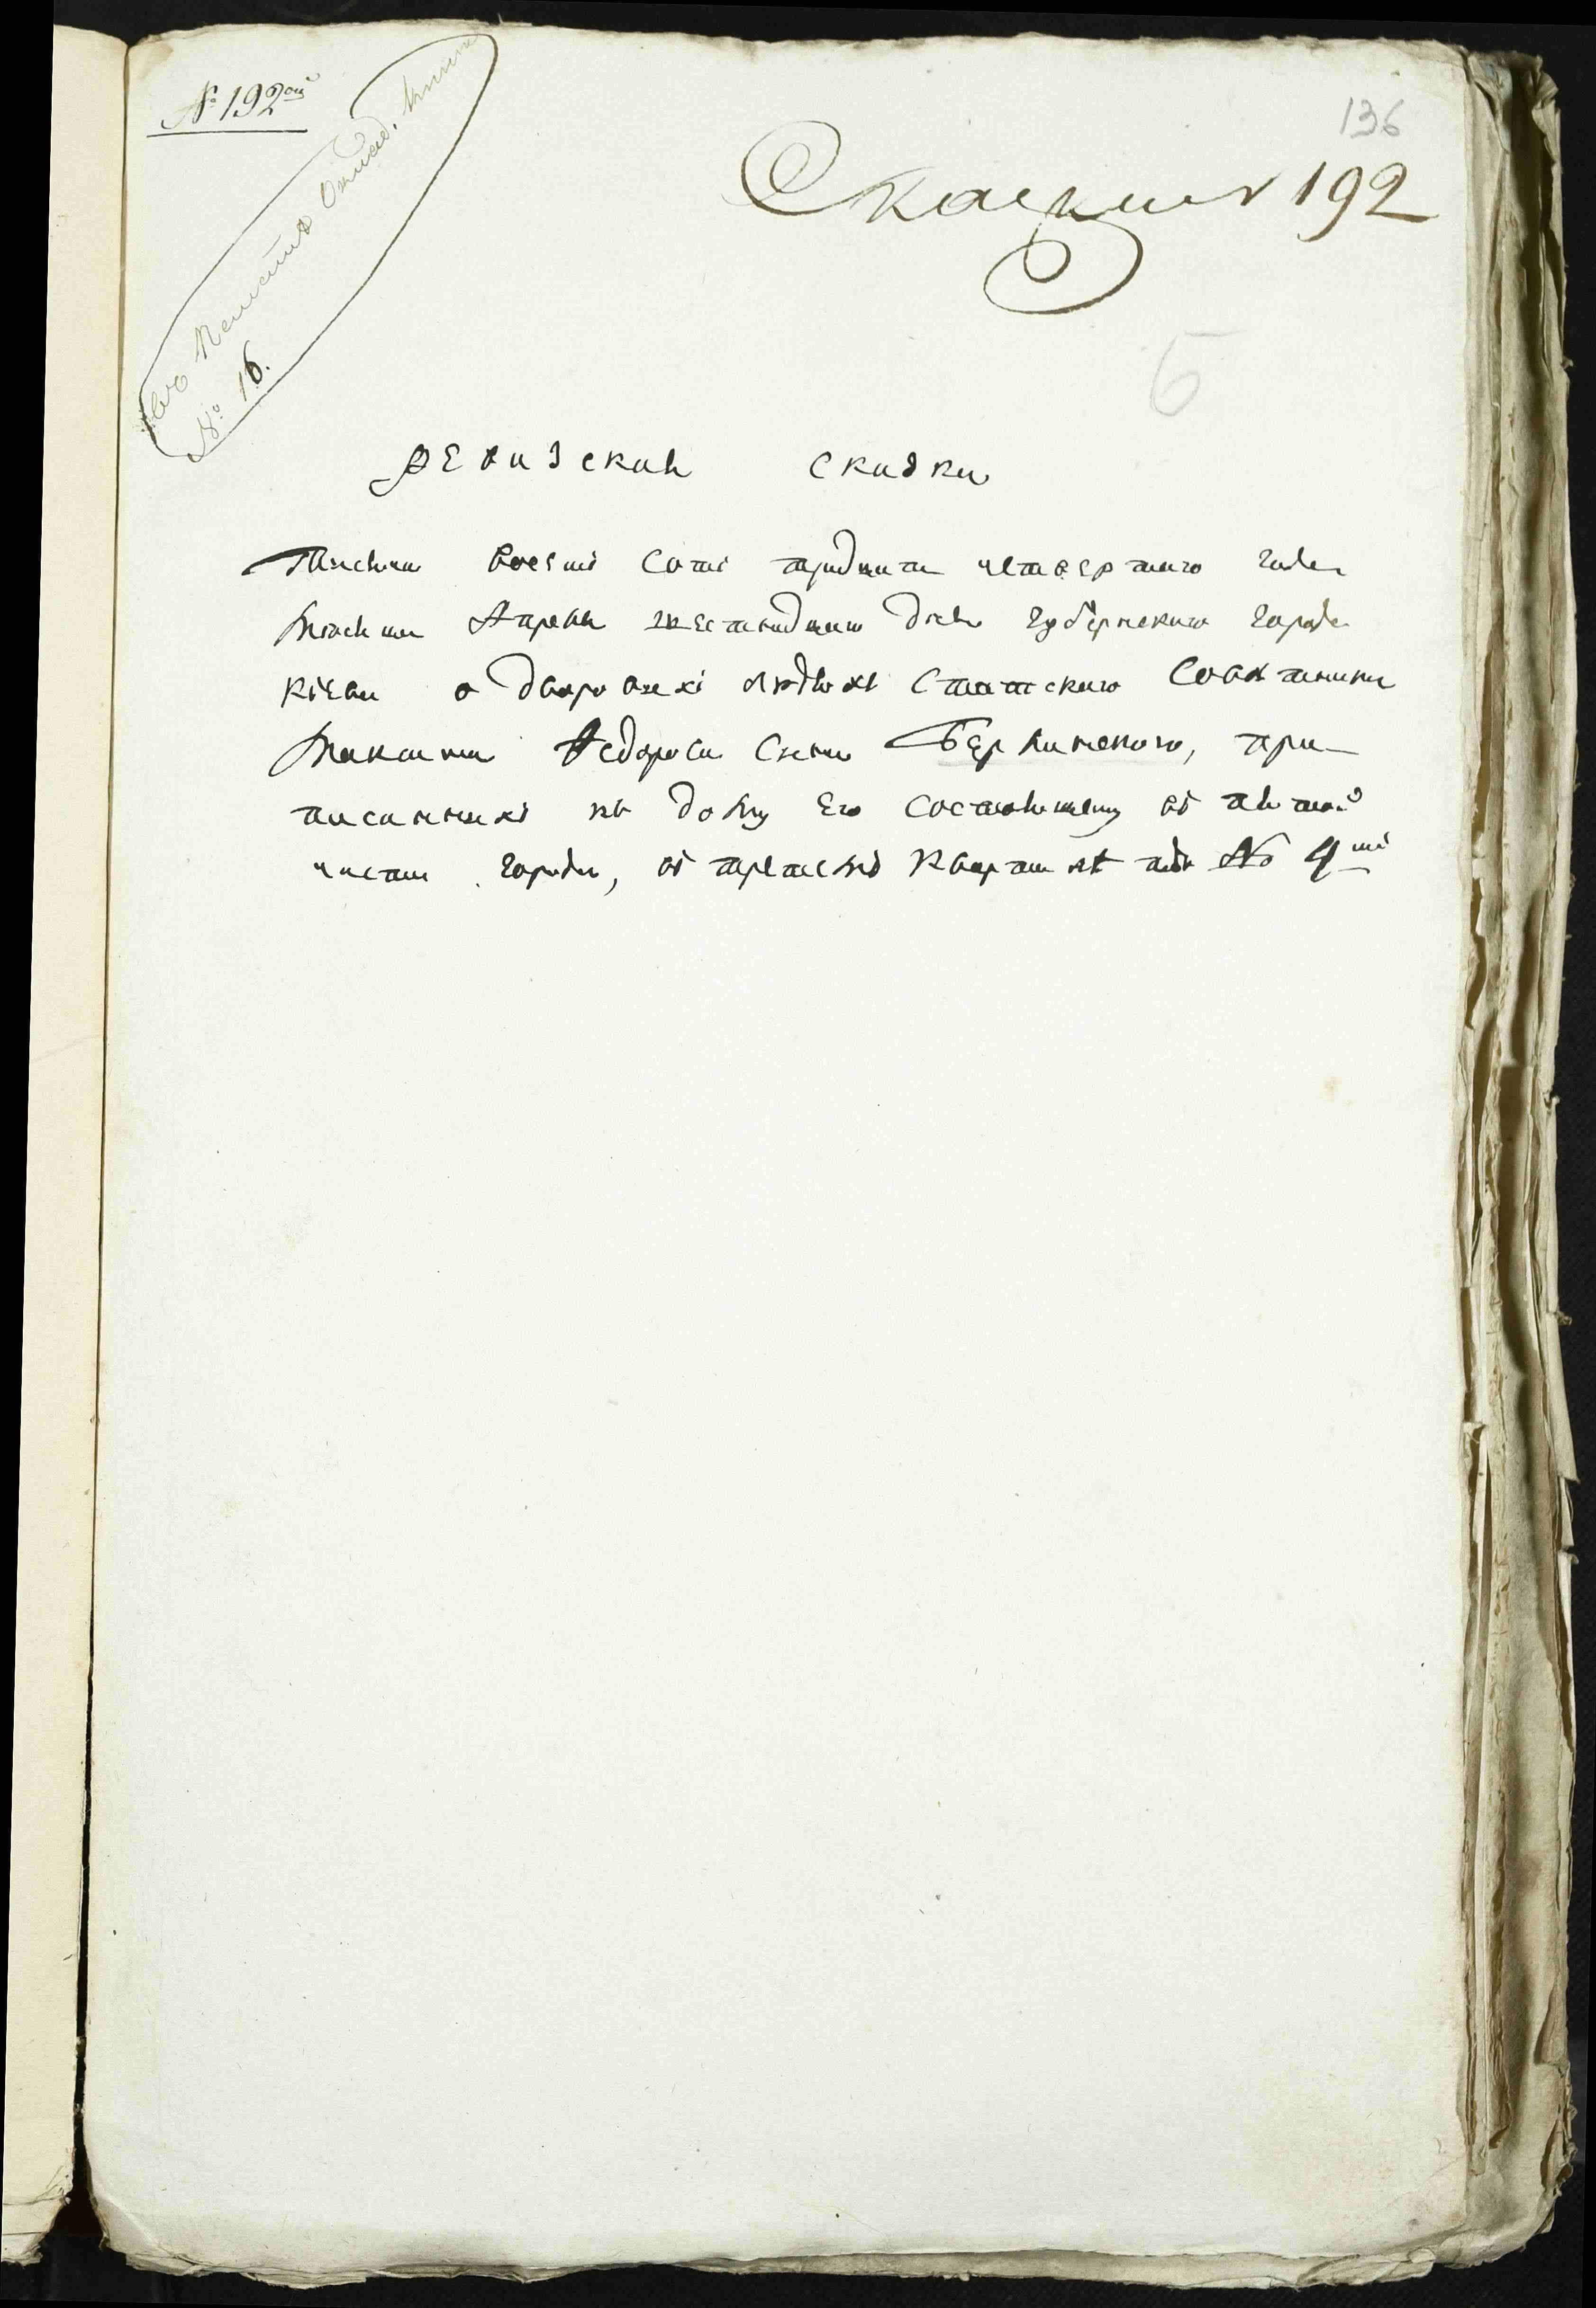 № 192ой
136
Сказка 192
№ 16.
6
Ревизская сказка
Тысяча восемъ сотъ тридцать четвертаго года
Месяца Апреля шестнадцаго дня губернскаго города
Кіева о дворовыхъ людяхъ Статского Советника
Максима Федорова сына Берлинского, при-
писанныхъ къ дому его состоящему въ пятой
части города, въ третьемъ квартале подъ № 4мъ